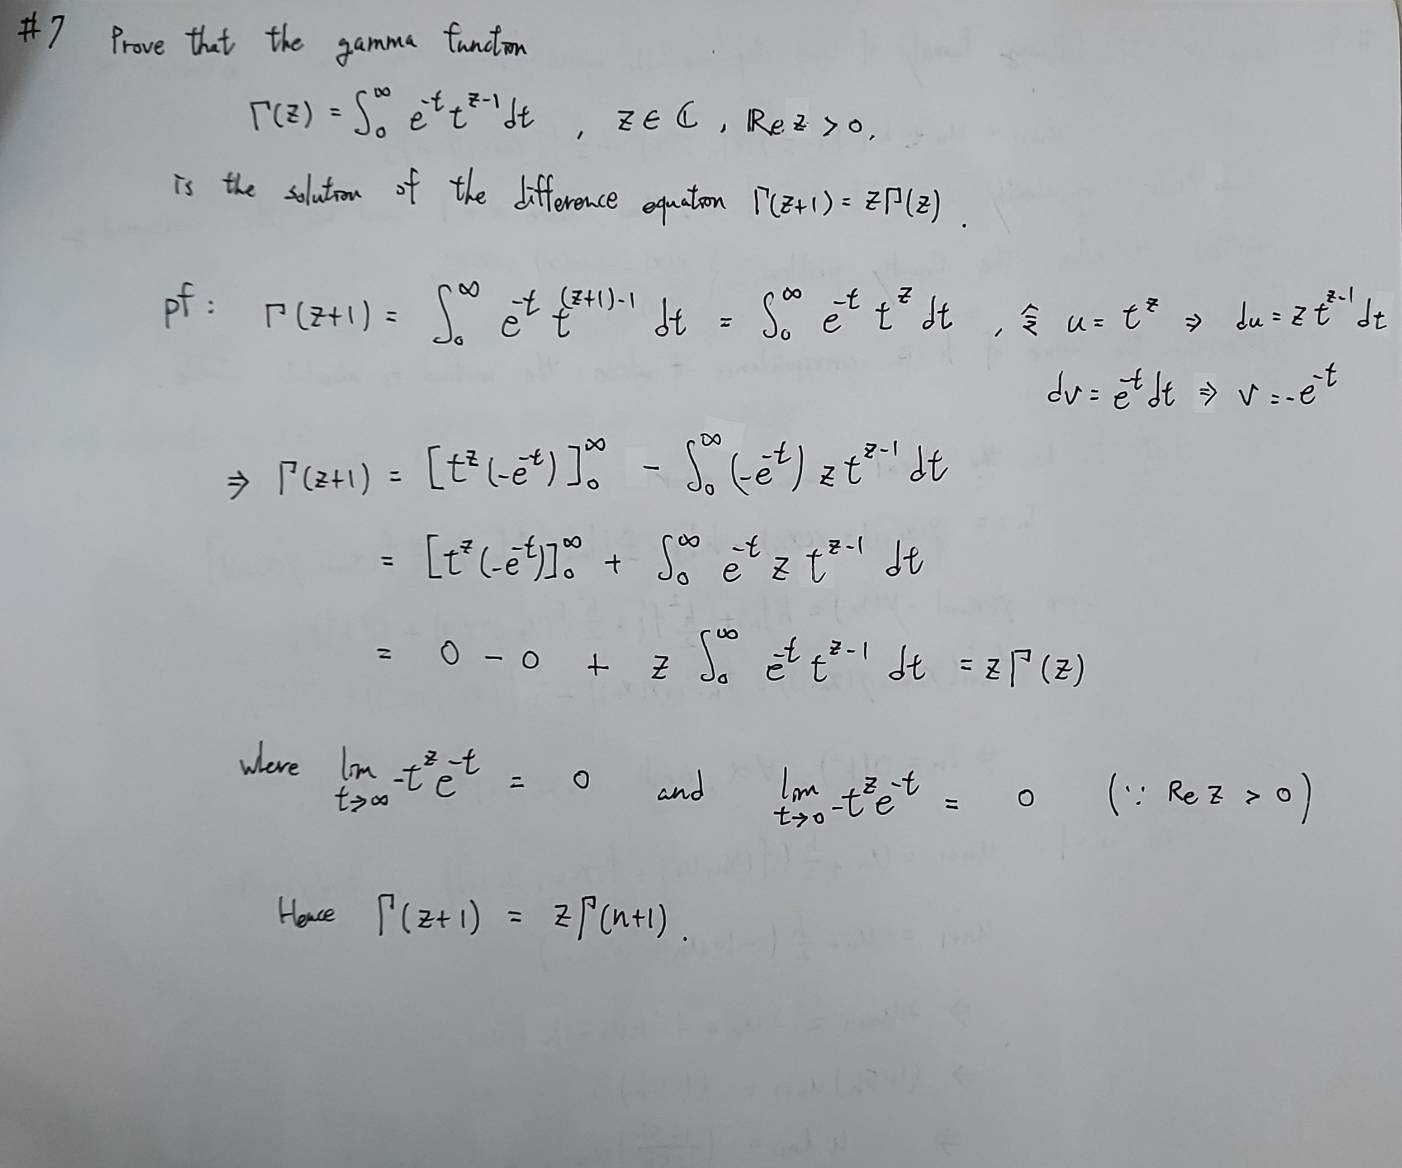 #7 Prove that the gamma function
Γ(z) = ∫₀^∞ e^{-t} t^{z-1} dt , z ∈ ℂ , Re z > 0,
is the solution of the difference equation Γ(z+1) = zΓ(z).
pf: Γ(z+1) = ∫₀^∞ e^{-t} t^{(z+1)-1} dt = ∫₀^∞ e^{-t} t^z dt , 令 u = t^z ⇒ du = z t^{z-1} dt
dv = e^{-t} dt ⇒ v = -e^{-t}
⇒ Γ(z+1) = [t^z (-e^{-t})]₀^∞ - ∫₀^∞ (-e^{-t}) z t^{z-1} dt
= [t^z (-e^{-t})]₀^∞ + ∫₀^∞ e^{-t} z t^{z-1} dt
= 0 - 0 + z ∫₀^∞ e^{-t} t^{z-1} dt = zΓ(z)
where lim_{t→∞} -t^z e^{-t} = 0 and lim_{t→0} -t^z e^{-t} = 0 (∵ Re z > 0)
Hence Γ(z+1) = zΓ(n+1).